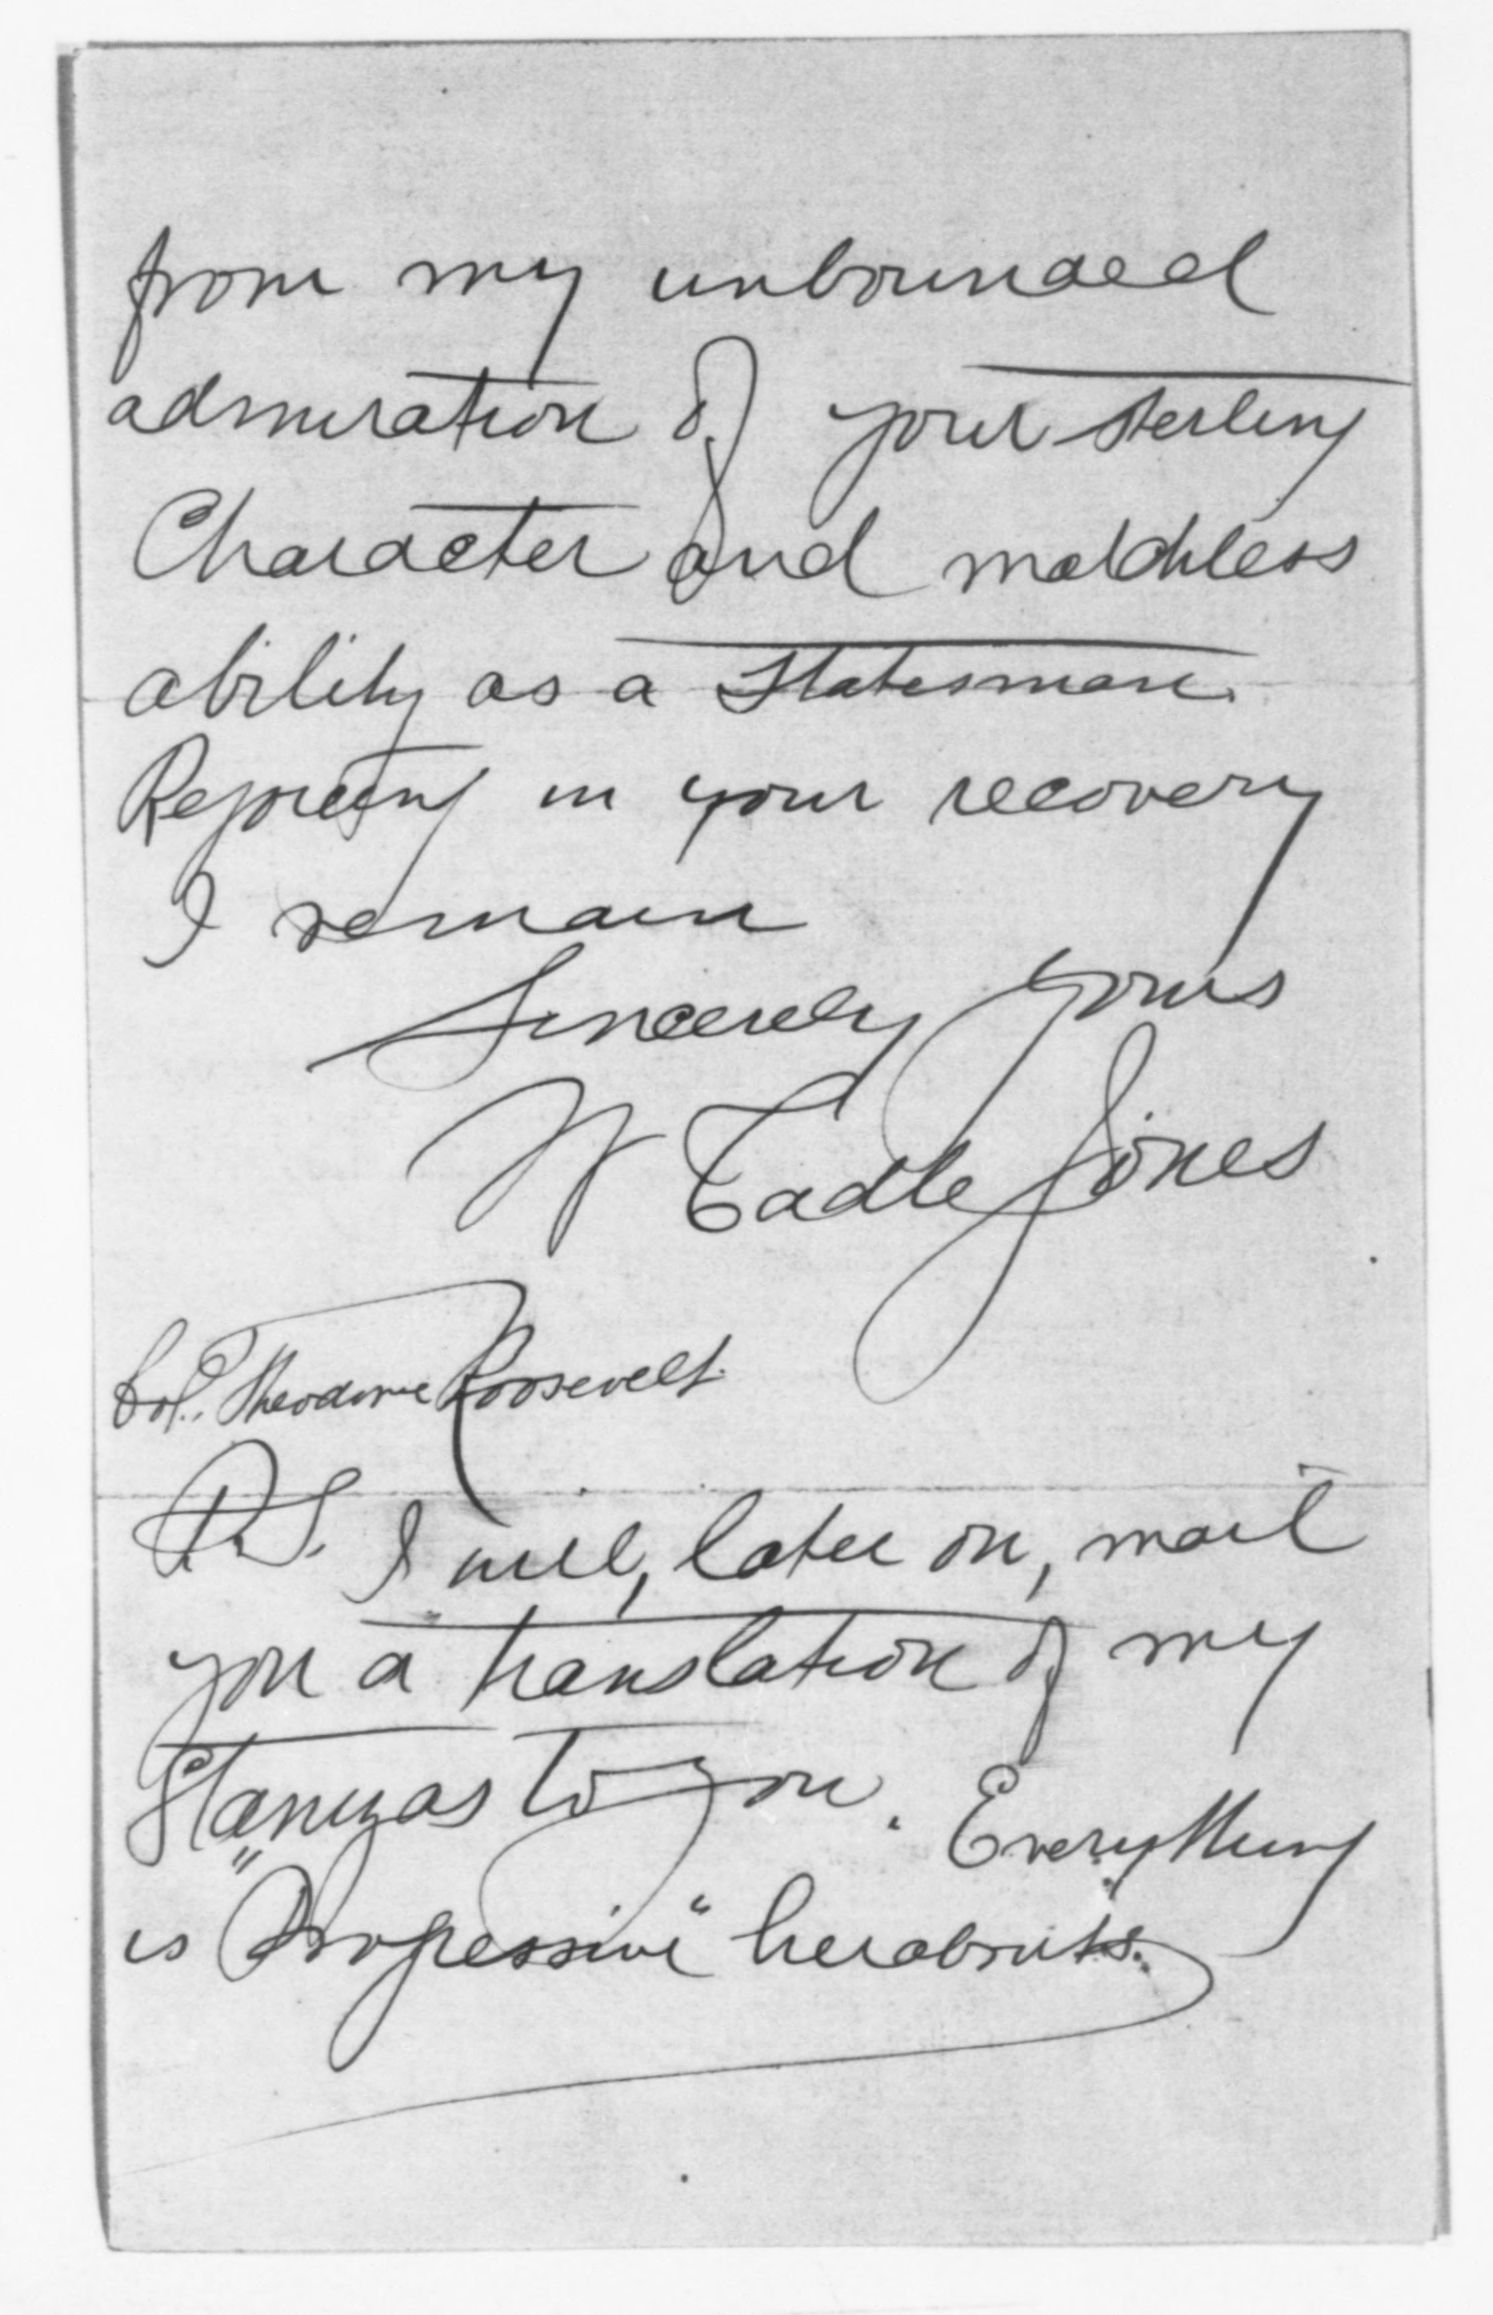 from my unbounded
admiration of your sterling
Character and matchless
ability as a statesman.
Rejoicing in your recovery
I remain
Sincerely yours
W Cadle Jones
Col. Theodore Roosevelt.
P.S. I will, later on, mail
you a translation of my
Stanzas to you. Everything
is "Progressive" hereabouts.